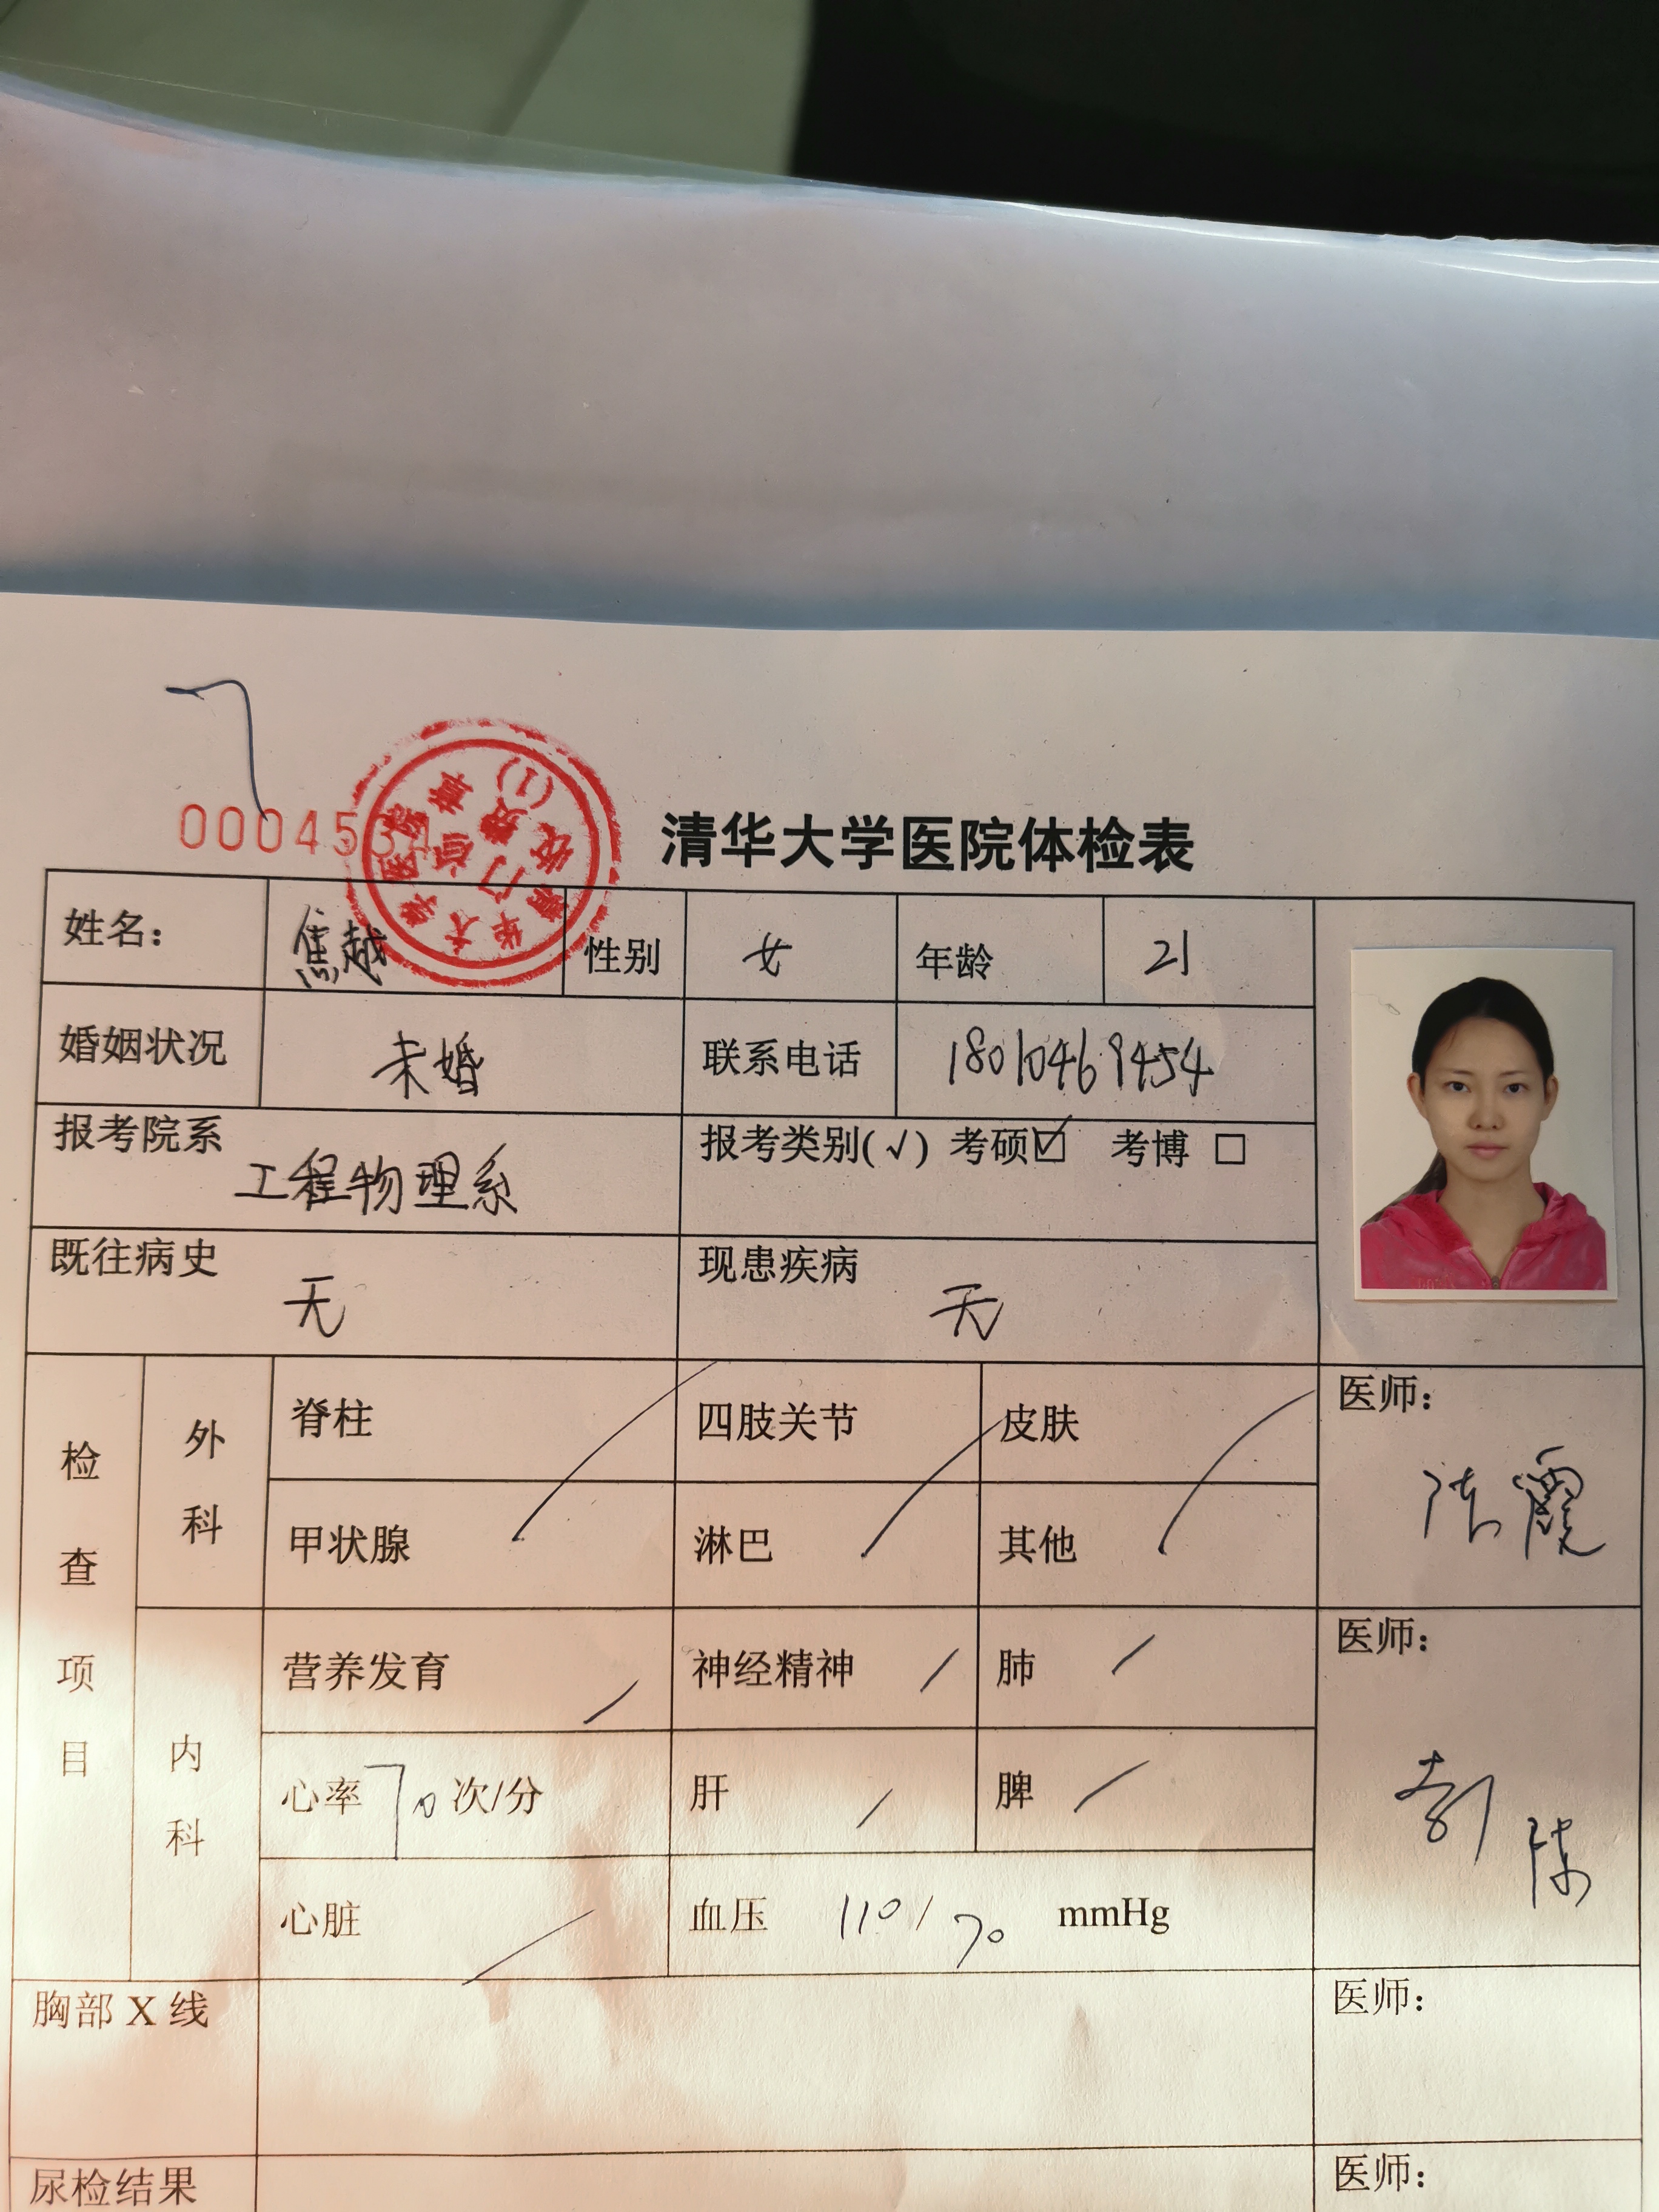 00045
清华大学医院体检表
姓名： 焦越 性别 女 年龄 21
婚姻状况 未婚 联系电话 18010469454
报考院系 工程物理系 报考类别(√) 考硕☑ 考博 □
既往病史 无 现患疾病 无
检查项目
外科
脊柱 四肢关节 皮肤 医师：
甲状腺 淋巴 其他
内科
营养发育 神经精神 肺 医师：
心率 70 次/分 肝 脾
心脏 血压 110/70 mmHg
胸部 X 线 医师：
尿检结果 医师：